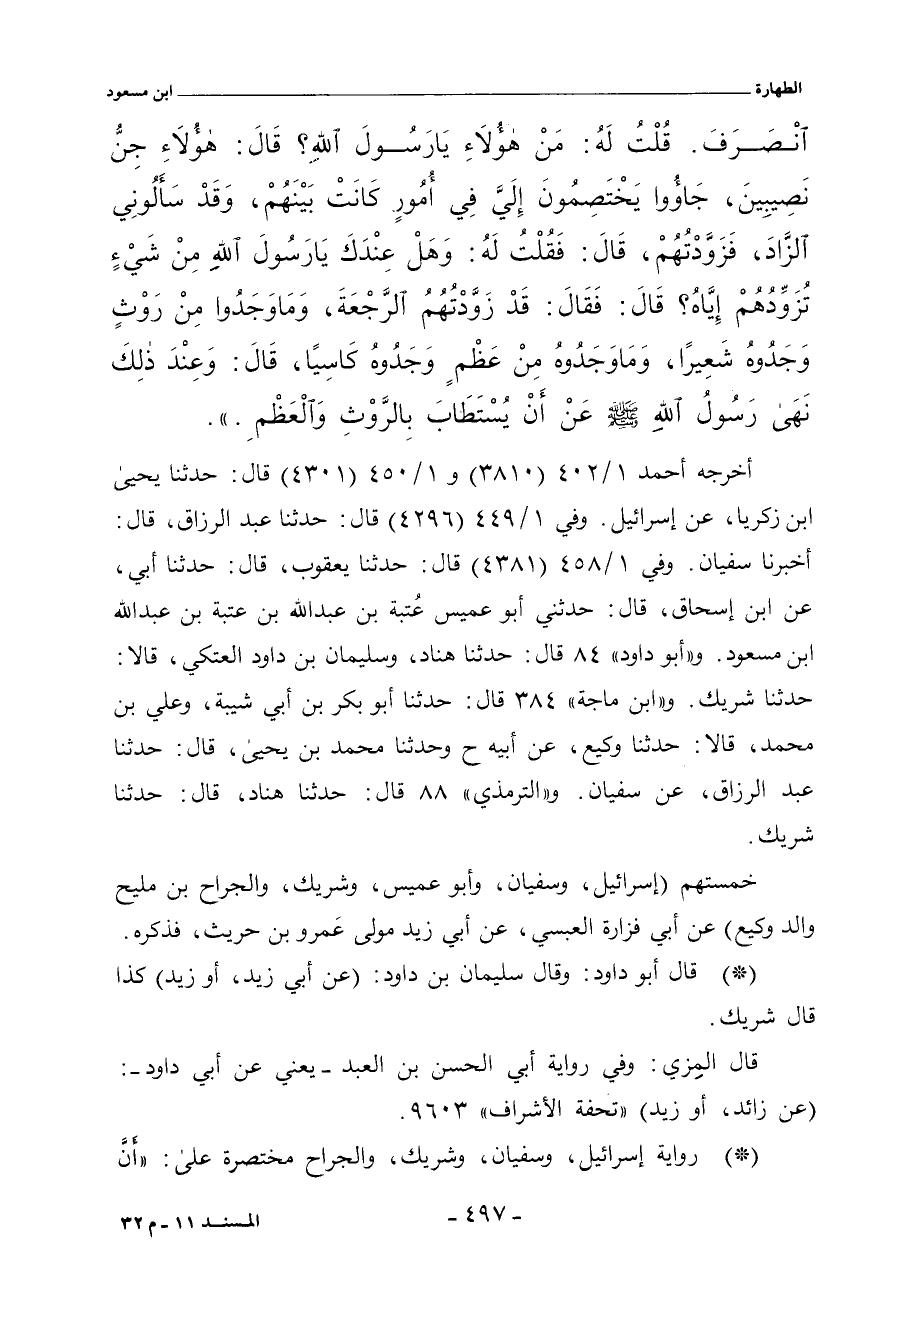 الطهارة ــــــــــــــــ ابن مسعود
ٱنْـصَــرَفَ. قُلْتُ لَهُ: مَنْ هٰؤُلَاءِ يَارَسُــولَ ٱللهِ؟ قَالَ: هٰؤُلَاءِ جِنُّ
نَصِيبِينَ، جَاؤُوا يَخْتَصِمُونَ إِلَيَّ فِي أُمُورٍ كَانَتْ بَيْنَهُمْ، وَقَدْ سَأَلُونِي
ٱلزَّادَ، فَزَوَّدْتُهُمْ، قَالَ: فَقُلْتُ لَهُ: وَهَلْ عِنْدَكَ يَارَسُولَ ٱللهِ مِنْ شَيْءٍ
تُزَوِّدُهُمْ إِيَّاهُ؟ قَالَ: فَقَالَ: قَدْ زَوَّدْتُهُمُ ٱلرَّجْعَةَ، وَمَاوَجَدُوا مِنْ رَوْثٍ
وَجَدُوهُ شَعِيرًا، وَمَاوَجَدُوهُ مِنْ عَظْمٍ وَجَدُوهُ كَاسِيًا، قَالَ: وَعِنْدَ ذٰلِكَ
نَهَىٰ رَسُولُ ٱللهِ ﷺ عَنْ أَنْ يُسْتَطَابَ بِالرَّوْثِ وَٱلْعَظْمِ .».
أخرجه أحمد ٤٠٢/١ (٣٨١٠) و ٤٥٠/١ (٤٣٠١) قال: حدثنا يحيىٰ
ابن زكريا، عن إسرائيل. وفي ٤٤٩/١ (٤٢٩٦) قال: حدثنا عبد الرزاق، قال:
أخبرنا سفيان. وفي ٤٥٨/١ (٤٣٨١) قال: حدثنا يعقوب، قال: حدثنا أبي،
عن ابن إسحاق، قال: حدثني أبو عميس عُتبة بن عبدالله بن عتبة بن عبدالله
ابن مسعود. و«أبو داود» ٨٤ قال: حدثنا هناد، وسليمان بن داود العتكي، قالا:
حدثنا شريك. و«ابن ماجة» ٣٨٤ قال: حدثنا أبو بكر بن أبي شيبة، وعلي بن
محمد، قالا: حدثنا وكيع، عن أبيه ح وحدثنا محمد بن يحيىٰ، قال: حدثنا
عبد الرزاق، عن سفيان. و«الترمذي» ٨٨ قال: حدثنا هناد، قال: حدثنا
شريك.
خمستهم (إسرائيل، وسفيان، وأبو عميس، وشريك، والجراح بن مليح
والد وكيع) عن أبي فزارة العبسي، عن أبي زيد مولى عَمرو بن حريث، فذكره.
(*) قال أبو داود: وقال سليمان بن داود: (عن أبي زيد، أو زيد) كذا
قال شريك.
قال المِزي: وفي رواية أبي الحسن بن العبد ـ يعني عن أبي داود ـ:
(عن زائد، أو زيد) «تحفة الأشراف» ٩٦٠٣.
(*) رواية إسرائيل، وسفيان، وشريك، والجراح مختصرة علىٰ: «أَنَّ
- ٤٩٧ -
المسند ١١ - م ٣٢